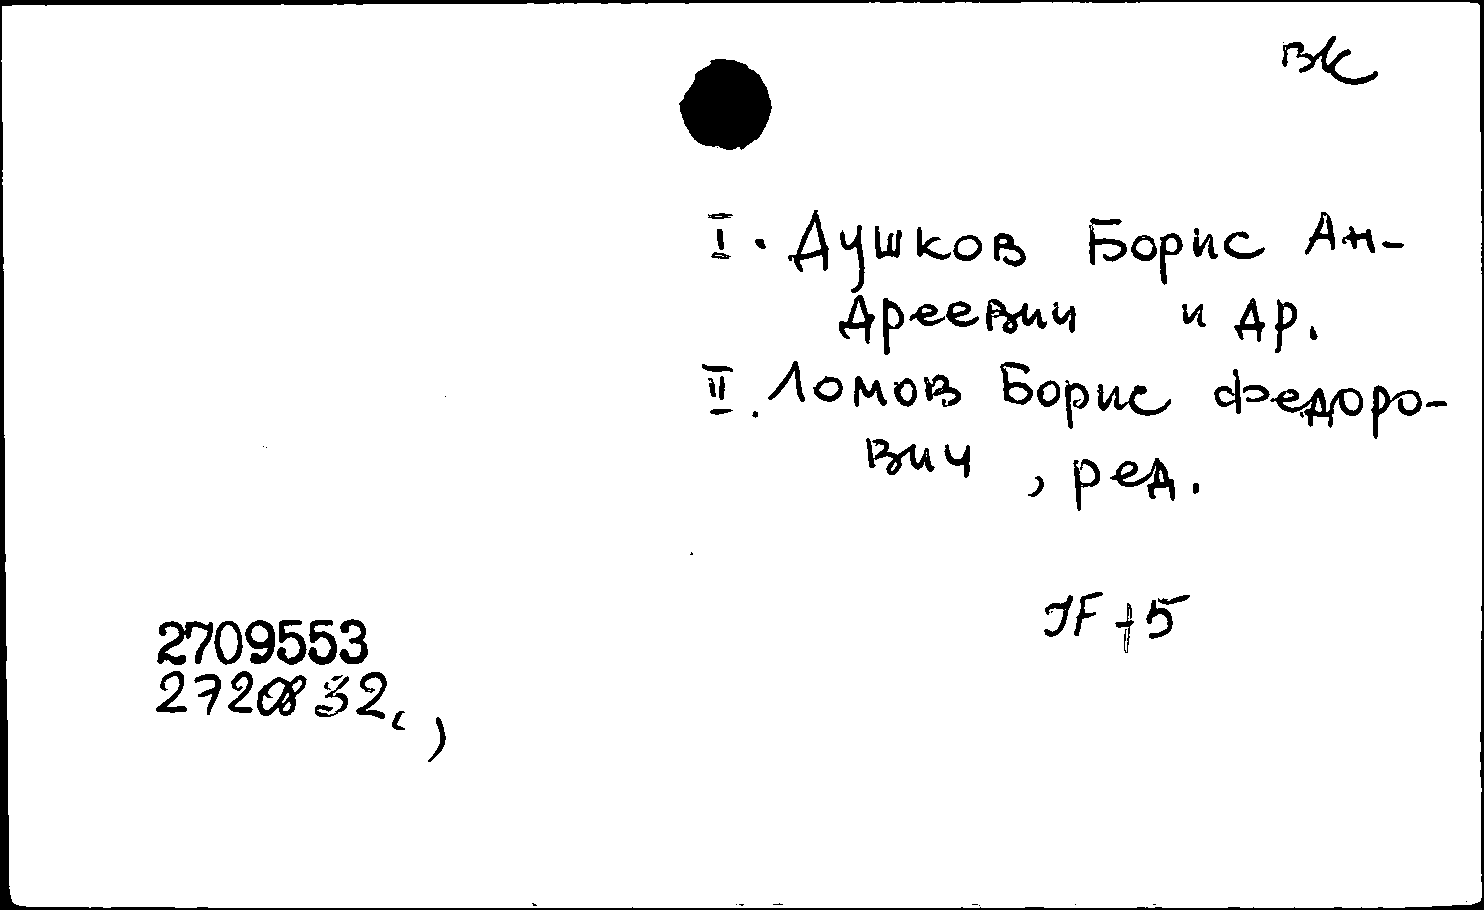 вк
I. Душков Борис Ан-
дреевич и др.
II. Ломов Борис Федоро-
вич, ред.
JF+5
2709553